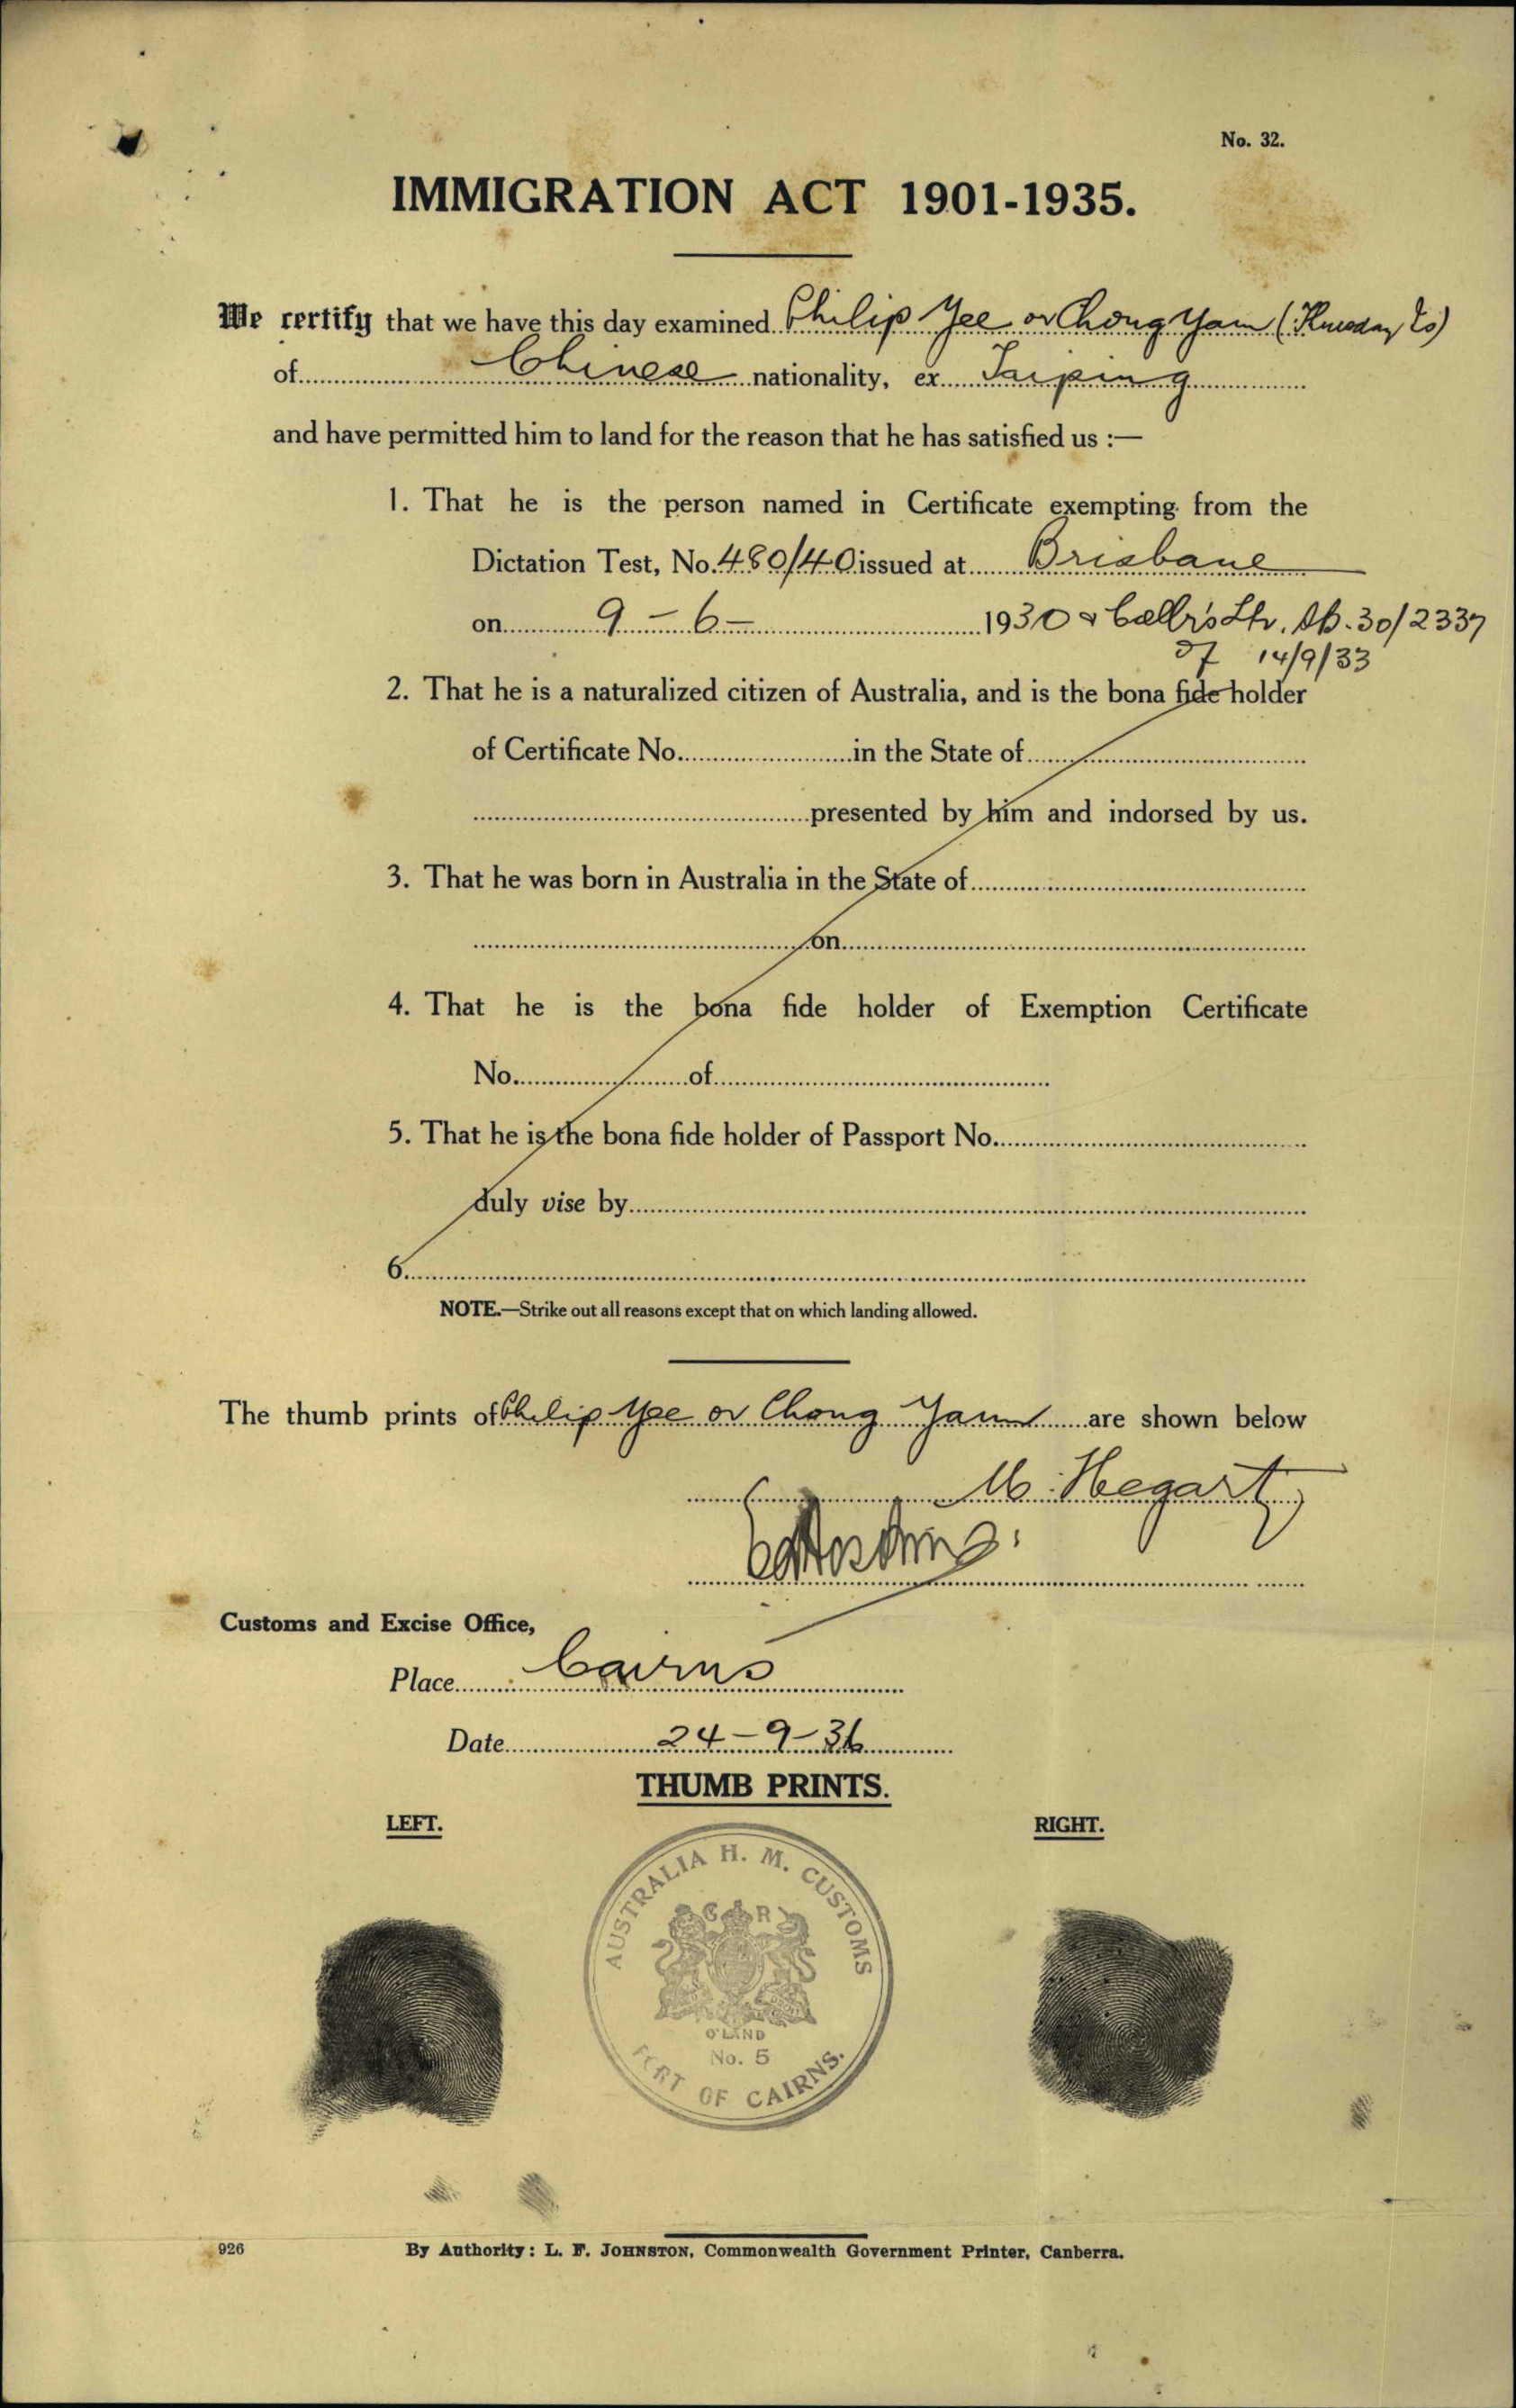 No. 32.
IMMIGRATION ACT 1901-1935.
We certify that we have this day examined Philip Yee or Chong Yam (Thursday Is)
of Chinese nationality, ex Taiping
and have permitted him to land for the reason that he has satisfied us :—
1. That he is the person named in Certificate exempting from the
Dictation Test, No. 480/40 issued at Brisbane
on 9 - 6 - 1930 & Collr's Ltr. 30/2337
of 14/9/33
2. That he is a naturalized citizen of Australia, and is the bona fide holder
of Certificate No. in the State of
presented by him and indorsed by us.
3. That he was born in Australia in the State of
on
4. That he is the bona fide holder of Exemption Certificate
No. of
5. That he is the bona fide holder of Passport No.
duly vise by
6.
NOTE.—Strike out all reasons except that on which landing allowed.
The thumb prints of Philip Yee or Chong Yam are shown below
M. Hegarty
Customs and Excise Office,
Place Cairns
Date 24-9-36
THUMB PRINTS.
LEFT.
RIGHT.
AUSTRALIA H. M. CUSTOMS
G R
Q'LAND
No. 5
PORT OF CAIRNS.
926
By Authority: L. F. JOHNSTON, Commonwealth Government Printer, Canberra.